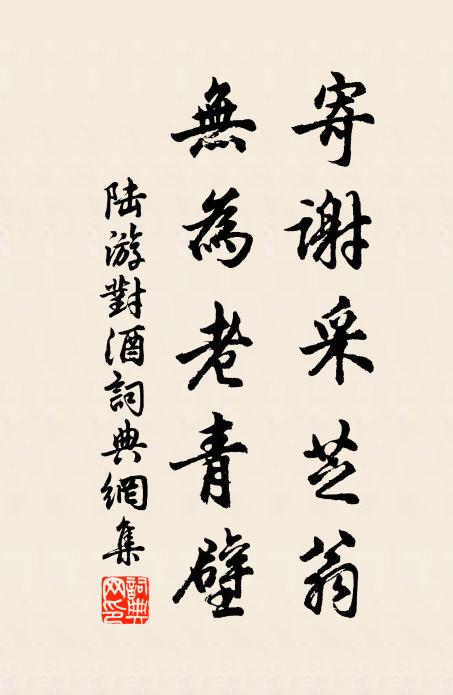 寄谢采芝翁
無為老青壁
陆游對酒詞典網集
詞典网印